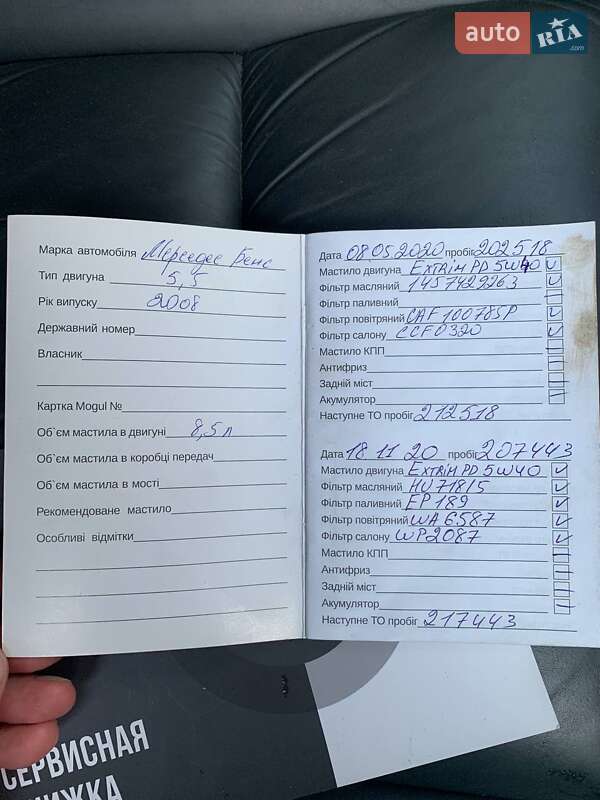 auto RIA.com
Марка автомобіля Мерседес Бенс
Тип двигуна 5,5
Рік випуску 2008
Державний номер
Власник
Картка Mogul №
Об`єм мастила в двигуні 8,5 л
Об`єм мастила в коробці передач
Об`єм мастила в мості
Рекомендоване мастило
Особливі відмітки
Дата 08.05.2020 пробіг 202518
Мастило двигуна EXTRIM PD 5W40
Фільтр масляний 1457429263
Фільтр паливний
Фільтр повітряний CAF 100785P
Фільтр салону CCF0320
Мастило КПП
Антифриз
Задній міст
Акумулятор
Наступне ТО пробіг 212518
Дата 18 11 20 пробіг 207443
Мастило двигуна EXTRIM PD 5W40
Фільтр масляний HU 718/5
Фільтр паливний EP 189
Фільтр повітряний WA 6587
Фільтр салону WP2087
Мастило КПП
Антифриз
Задній міст
Акумулятор
Наступне ТО пробіг 217443
СЕРВИСНАЯ